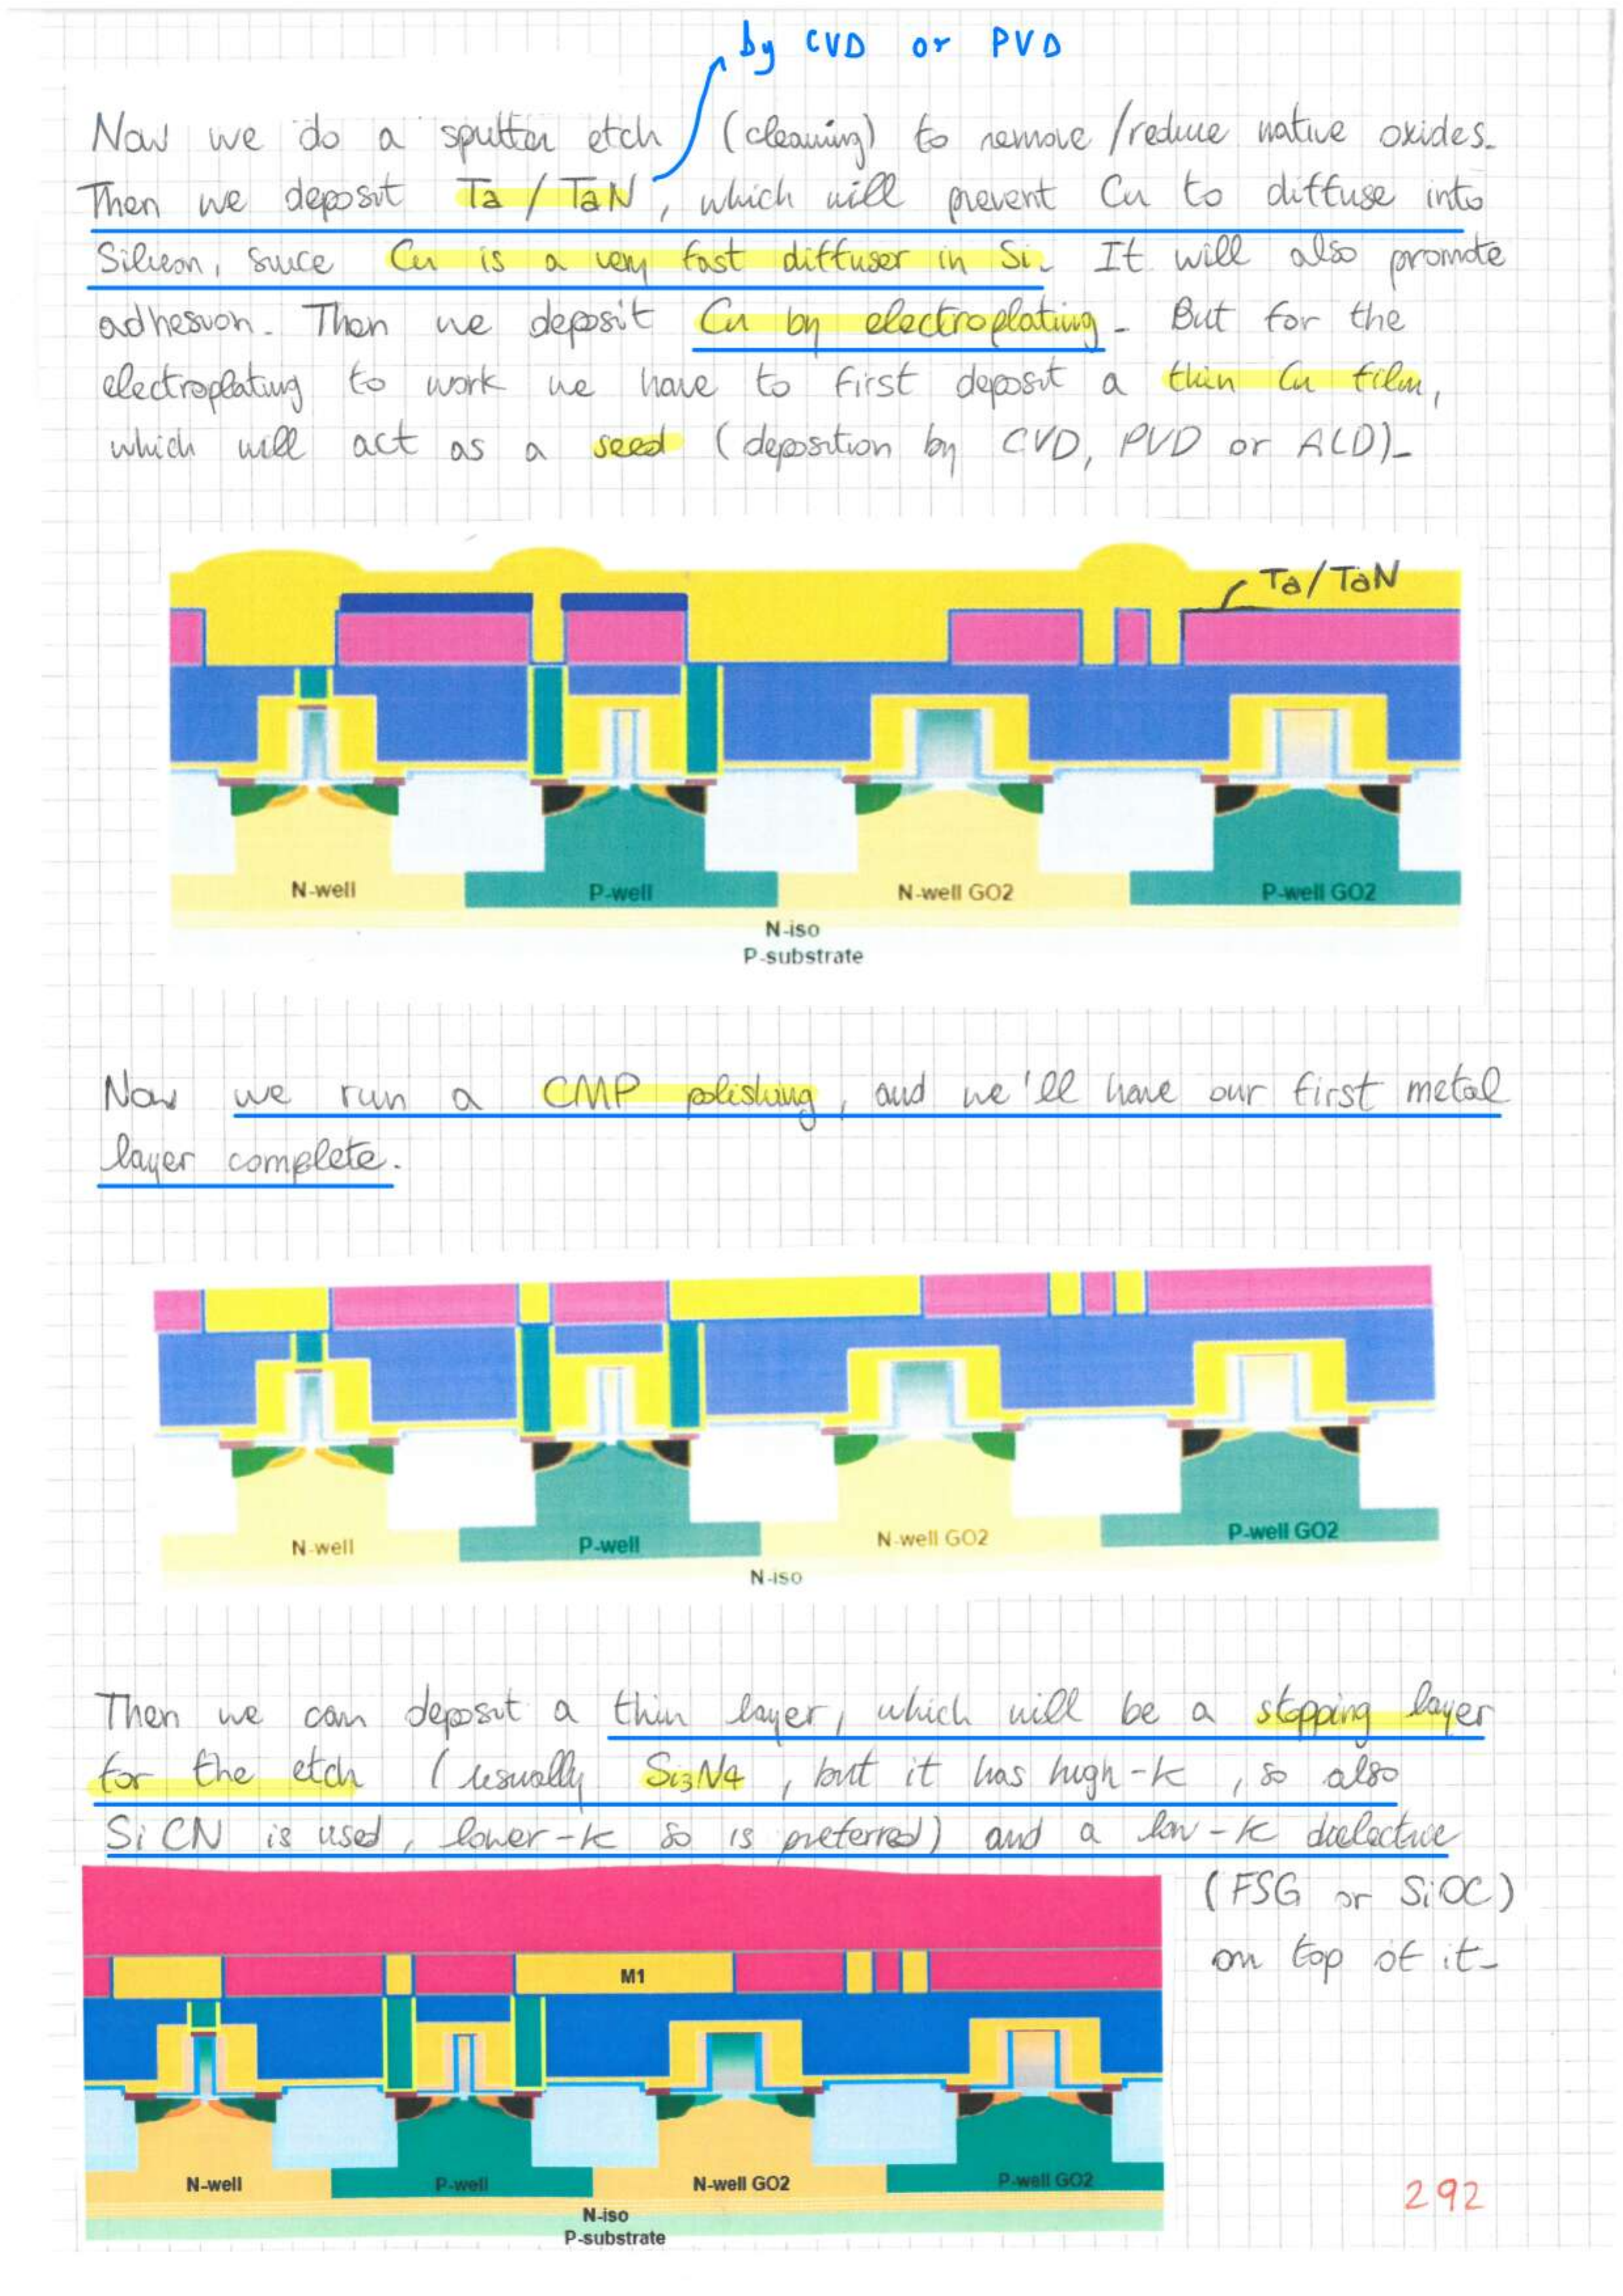 by CVD or PVD
Now we do a sputter etch (cleaning) to remove/reduce native oxides.
Then we deposit Ta/TaN, which will prevent Cu to diffuse into
Silicon, since Cu is a very fast diffuser in Si. It will also promote
adhesion. Then we deposit Cu by electroplating. But for the
electroplating to work we have to first deposit a thin Cu film,
which will act as a seed (deposition by CVD, PVD or ALD).
Ta/TaN
N-well P-well N-well GO2 P-well GO2
N-iso
P-substrate
Now we run a CMP polishing, and we'll have our first metal
layer complete.
N-well P-well N-well GO2 P-well GO2
N-iso
Then we can deposit a thin layer, which will be a stopping layer
for the etch (usually Si3N4, but it has high-k, so also
SiCN is used, lower-k so is preferred) and a low-k dielectric
(FSG or SiOC)
on top of it.
M1
N-well P-well N-well GO2 P-well GO2
N-iso
P-substrate
292